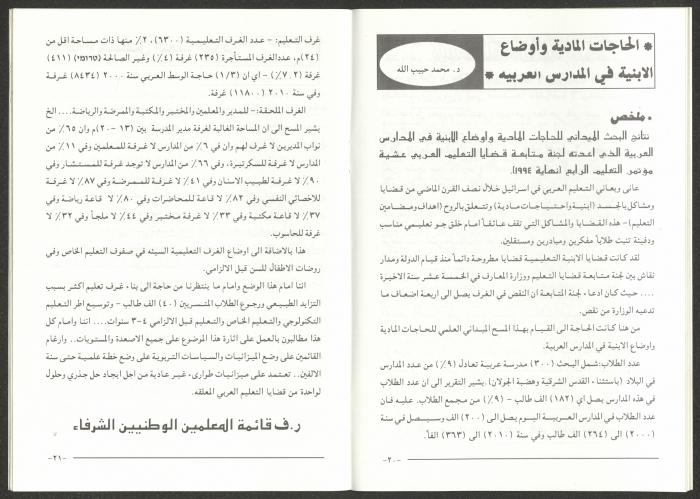 * الحاجات المادية وأوضاع
الابنية في المدارس العربيه *
د. محمد حبيب الله
• ملخص
نتائج البحث الميداني للحاجات المادية وأوضاع الابنية في المدارس
العربية الذي اعدته لجنة متابعة قضايا التعليم العربي عشية
مؤتمر التعليم الرابع (نهاية ١٩٩٤).
عانى ويعاني التعليم العربي في اسرائيل خلال نصف القرن الماضي من قضايا
ومشاكل بالجسد (ابنية واحتياجات مادية) وتتعلق بالروح (اهداف ومضامين
التعليم) - هذه القضايا والمشاكل التي تقف عائقاً امام خلق جو تعليمي مناسب
ودفيئة تنبت طلاباً مفكرين ومبادرين ومستقلين.
لقد كانت قضايا الابنية التعليمية قضايا مطروحة دائماً منذ قيام الدولة ومدار
نقاش بين لجنة متابعة قضايا التعليم ووزارة المعارف في الخمسة عشر سنة الاخيرة
.... حيث كان ادعاء لجنة المتابعة ان النقص في الغرف يصل الى اربعة اضعاف ما
تدعيه الوزارة من نقص.
من هنا كانت الحاجة الى القيام بهذا المسح الميداني العلمي للحاجات المادية
واوضاع الابنية في المدارس العربية.
عدد الطلاب: شمل البحث (٣٠٠) مدرسة عربية تعادل (٩٪) من عدد المدارس
في البلاد (باستثناء القدس الشرقية وهضبة الجولان). يشير التقرير الى ان عدد الطلاب
في هذه المدارس يصل اي (١٨٢) الف طالب - (٩٪) من مجمع الطلاب. عليه فان
عدد الطلاب في المدارس العربية اليوم يصل الى (٢٠٠) الف وسيصل في سنة
(٢٠٠٠) الى (٢٦٤) الف طالب وفي سنة (٢٠١٠) الى (٣٦٣) الفاً.
-٢٠-
غرف التعليم: - عدد الغرف التعليمية (٦٣٠٠)، ٢٪ منها ذات مساحة اقل من
(٢٤)م، عدد الغرف المستأجرة (٢٣٥) غرفة (٤٪) وغير الصالحة (טרומי) (٤١١)
غرفة (٢.٧٪) - اي ان (١/٣) حاجة الوسط العربي سنة ٢٠٠٠ (٨٤٣٤) غرفة
وفي سنة ٢٠١٠ (١١٨٠٠) غرفة.
الغرف الملحقة: - للمدير والمعلمين والمختبر والمكتبة والممرضة والرياضة.... الخ
يشير المسح الى ان المساحة الغالبة لغرفة مدير المدرسة بين (١٣ - ٢٠)م وان ٦٥٪ من
نواب المديرين لا غرف لهم وان في ٦٪ من المدارس لا غرفة للمعلمين وفي ١١٪ من
المدارس لا غرفة للسكرتيرة، وفي ٦٦٪ من المدارس لا توجد غرفة للمستشار وفي
٩٠٪ لا غرفة لطبيب الاسنان وفي ٤١٪ لا غرفة للممرضة وفي ٨٧٪ لا غرفة
للاخصائي النفسي وفي ٨٢٪ لا قاعة للمحاضرات وفي ٨٠٪ لا قاعة رياضة وفي
٣٧٪ لا قاعة مكتبة وفي ٣٣٪ لا غرفة مختبر وفي ٤٤٪ لا ملجأ وفي ٣٢٪ لا
غرفة للحاسوب.
هذا بالاضافة الى اوضاع الغرف التعليمية السيئه في صفوف التعليم الخاص وفي
روضات الاطفال للسن قبل الالزامي.
اننا امام هذا الوضع وامام ما ينتظرنا من حاجة الى بناء غرف تعليم اكثر بسبب
التزايد الطبيعي ورجوع الطلاب المتسربين (٤٠) الف طالب - وتوسيع اطر التعليم
التكنولوجي والتعليم الخاص والتعليم قبل الالزامي ٣-٤ سنوات.... اننا وامام كل
هذا مطالبون بالعمل على اثارة هذا الموضوع على جميع الاصعدة والمستويات.. وارغام
القائمين على وضع الميزانيات والسياسات التربوية على وضع خطة علمية حتى سنة
الالفين.. تعتمد على ميزانيات طوارىء غير عادية من اجل ايجاد حل جذري وحلول
لواحدة من قضايا التعليم العربي المعلقه.
ر.ف قائمة المعلمين الوطنيين الشرفاء
-٢١-